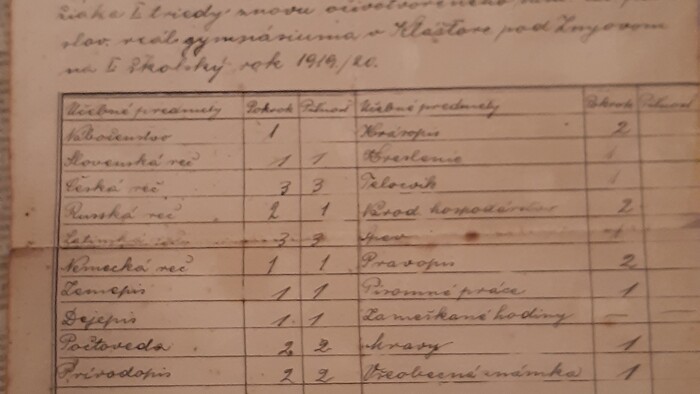 žiake I triedy znovu oživotvoreného
slov. reál. gymnásiuma v Kláštore pod Znyovom
na I. školský rok 1919/20.
Učebné predmety Pokrok Pilnosť Učebné predmety Pokrok Pilnosť
Náboženstvo 1 Krásopis 2
Slovenská reč 1 1 Kreslenie 1
Česká reč 3 3 Telocvik 1
Russká reč 2 1 Národ. hospodárstvo 2
Latinská reč 3 3 Spev 1
Nemecká reč 1 1 Pravopis 2
Zemepis 1 1 Písomné práce 1
Dejepis 1 1 Zameškané hodiny — —
Počtoveda 2 2 Mravy 1
Prírodopis 2 2 Všeobecná známka 1